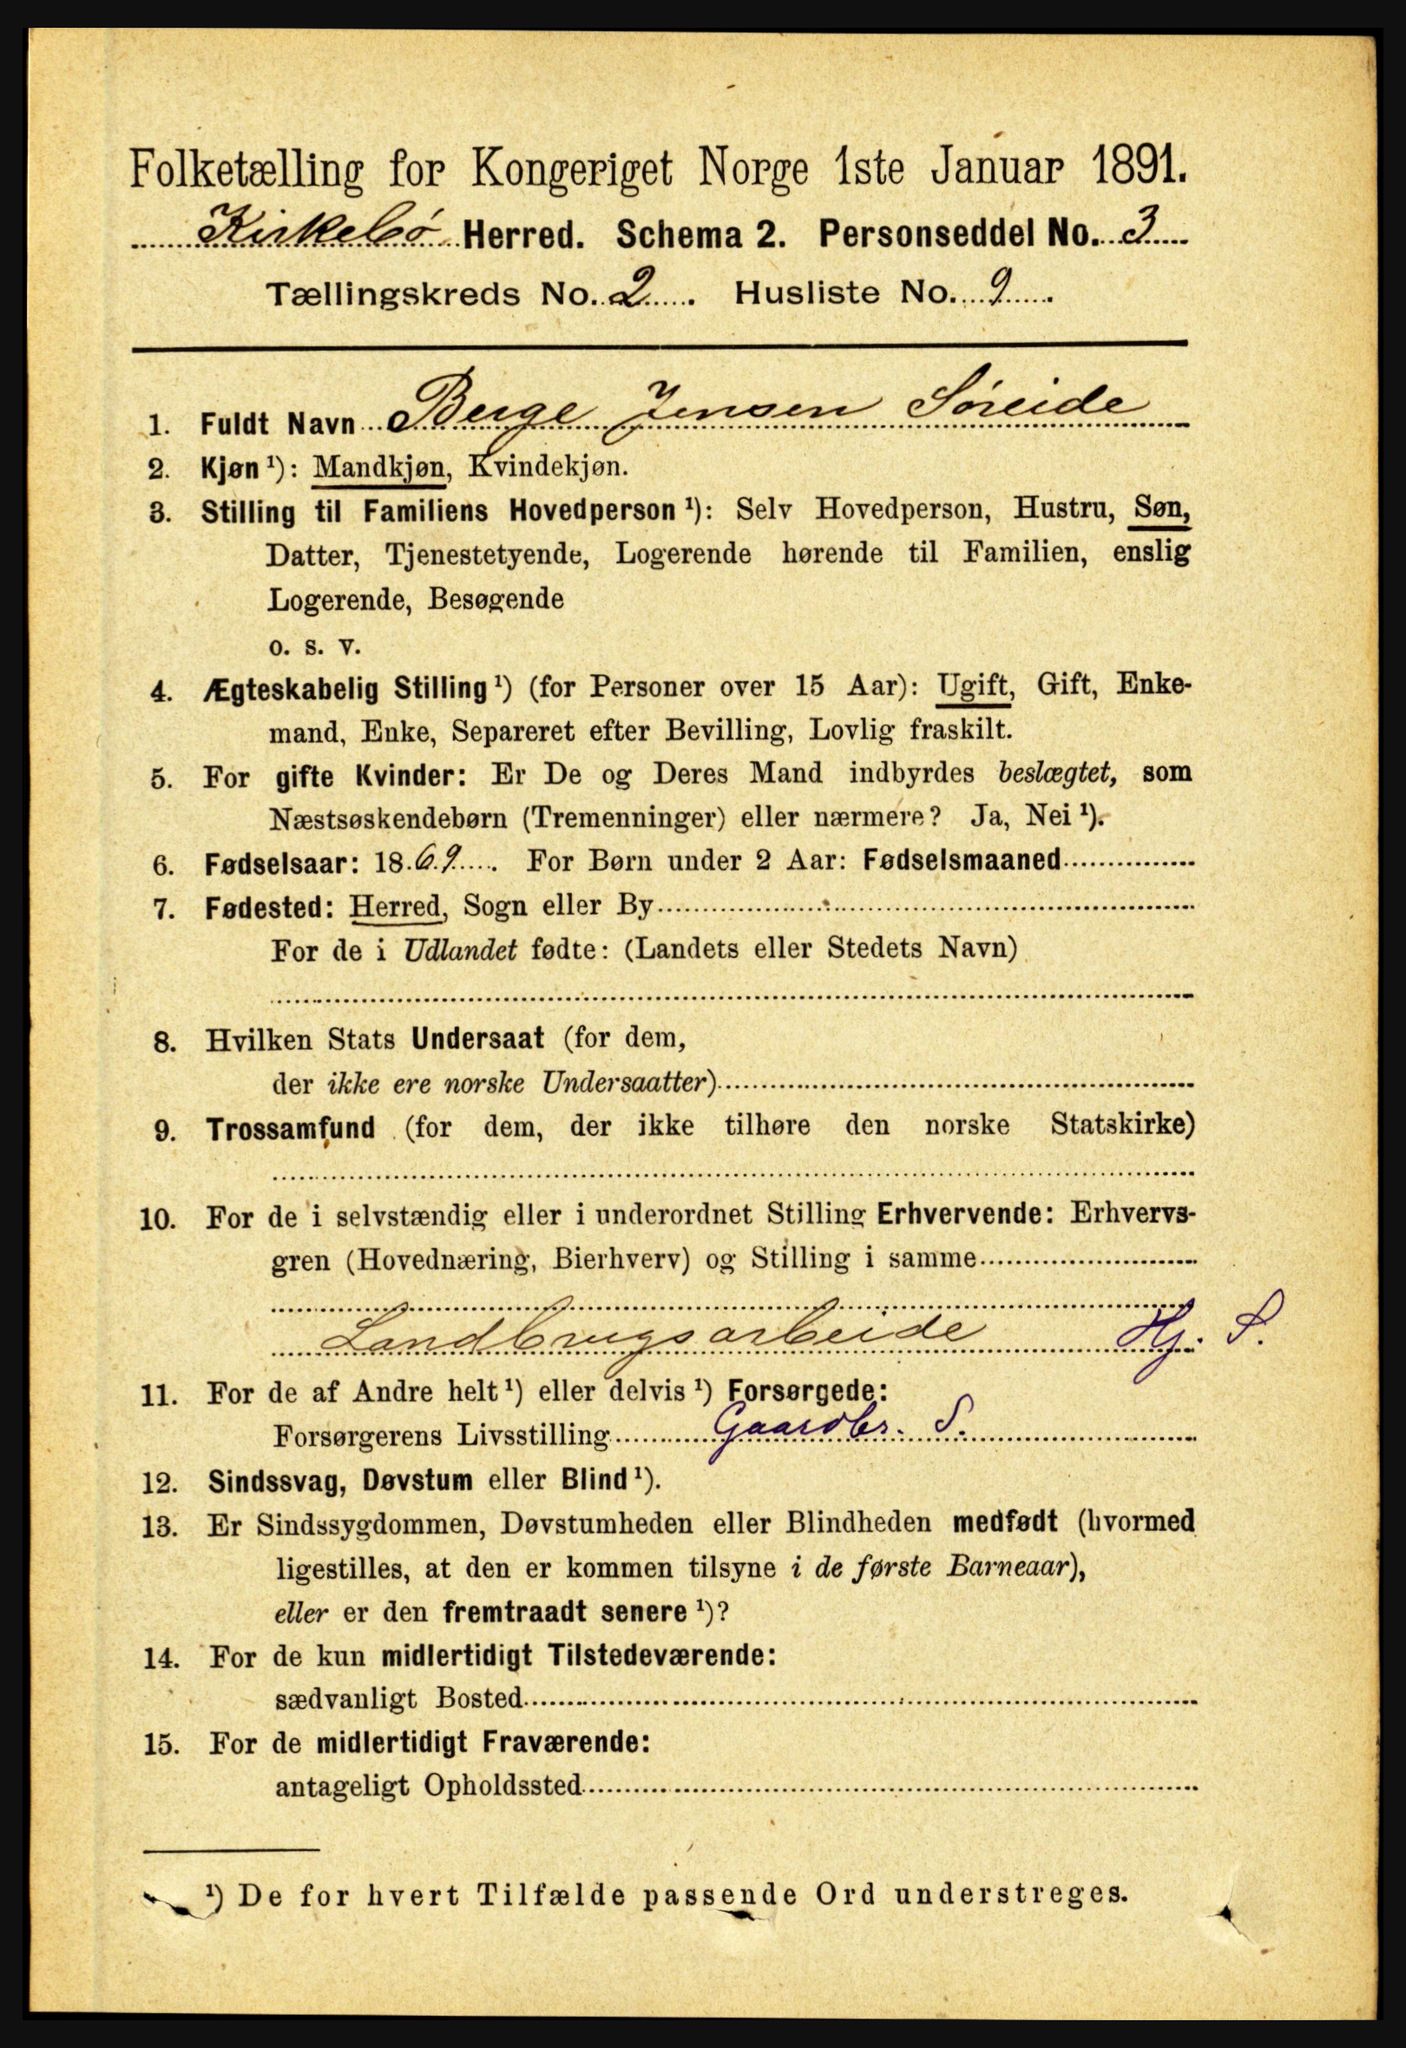 Folketælling for Kongeriget Norge 1ste Januar 1891.
Kirkebø Herred. Schema 2. Personseddel No. 3
Tællingskreds No. 2. Husliste No. 9.
1. Fuldt Navn Berge Jensen Søreide
2. Kjøn ¹): Mandkjøn, Kvindekjøn.
3. Stilling til Familiens Hovedperson ¹): Selv Hovedperson, Hustru, Søn,
Datter, Tjenestetyende, Logerende hørende til Familien, enslig
Logerende, Besøgende
o. s. v.
4. Ægteskabelig Stilling ¹) (for Personer over 15 Aar): Ugift, Gift, Enke-
mand, Enke, Separeret efter Bevilling, Lovlig fraskilt.
5. For gifte Kvinder: Er De og Deres Mand indbyrdes beslægtet, som
Næstsøskendebørn (Tremenninger) eller nærmere? Ja, Nei ¹).
6. Fødselsaar: 1869. For Børn under 2 Aar: Fødselsmaaned
7. Fødested: Herred, Sogn eller By
For de i Udlandet fødte: (Landets eller Stedets Navn)
8. Hvilken Stats Undersaat (for dem,
der ikke ere norske Undersaatter)
9. Trossamfund (for dem, der ikke tilhøre den norske Statskirke)
10. For de i selvstændig eller i underordnet Stilling Erhvervende: Erhvervs-
gren (Hovednæring, Bierhverv) og Stilling i samme
Landbrugsarbeide Hj. S.
11. For de af Andre helt ¹) eller delvis ¹) Forsørgede:
Forsørgerens Livsstilling Gaardbr. S.
12. Sindssvag, Døvstum eller Blind ¹).
13. Er Sindssygdommen, Døvstumheden eller Blindheden medfødt (hvormed
ligestilles, at den er kommen tilsyne i de første Barneaar),
eller er den fremtraadt senere ¹)?
14. For de kun midlertidigt Tilstedeværende:
sædvanligt Bosted
15. For de midlertidigt Fraværende:
antageligt Opholdssted
¹) De for hvert Tilfælde passende Ord understreges.